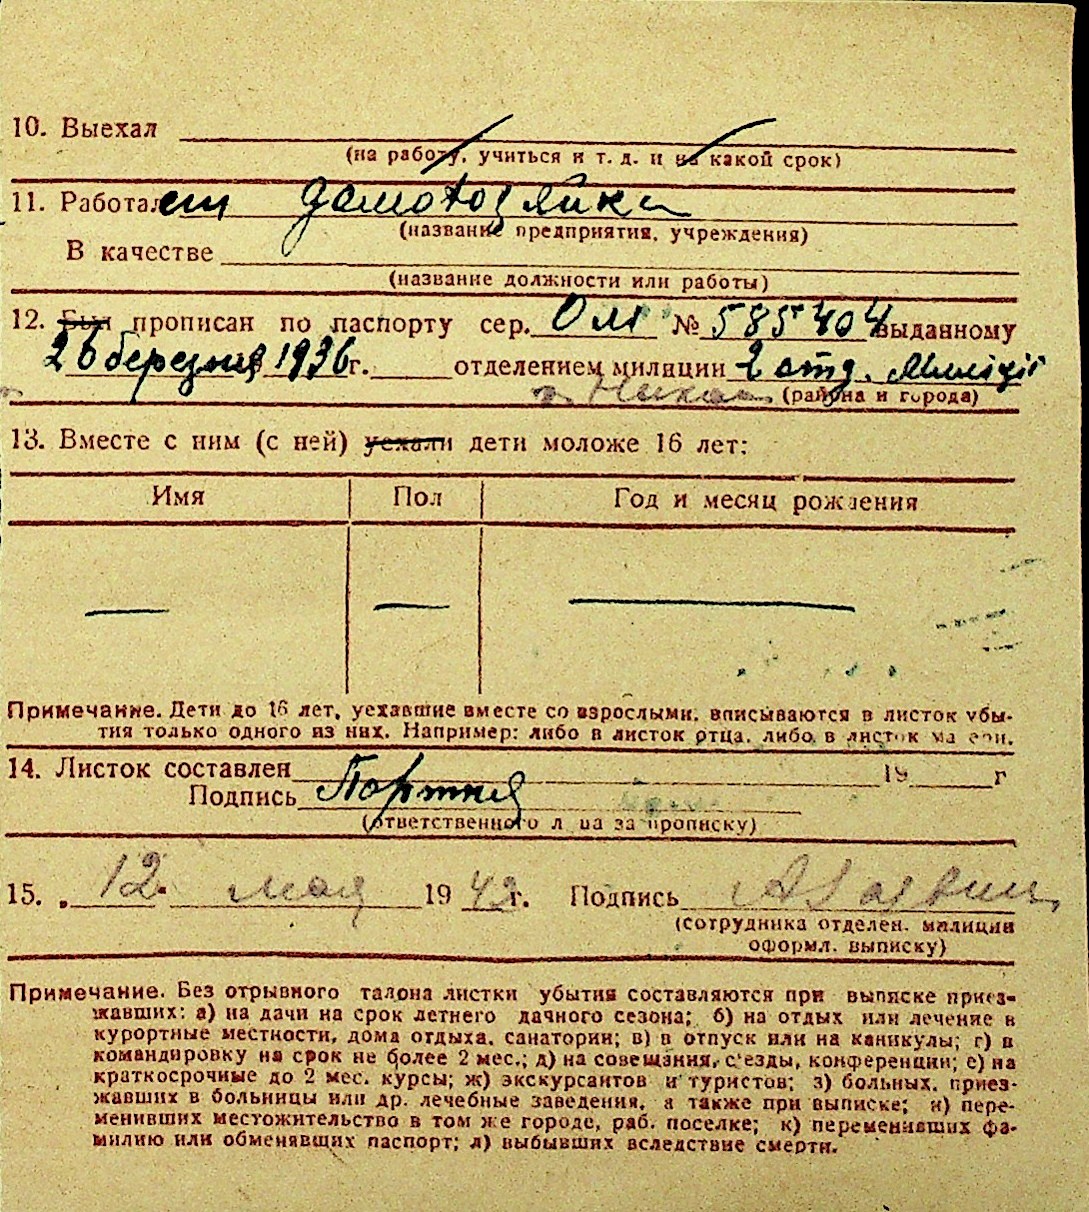 10. Выехал
(на работу, учиться и т. д. и на какой срок)
11. Работает домохозяйка
(название предприятия, учреждения)
В качестве
(название должности или работы)
12. Был прописан по паспорту сер. ОМ № 585404 выданному
26 березня 1936 г. отделением милиции 2 отд. Міліції
(района и города)
13. Вместе с ним (с ней) уехали дети моложе 16 лет:
Имя Пол Год и месяц рождения
— — —
Примечание. Дети до 16 лет, уехавшие вместе со взрослыми, вписываются в листок убы-
тия только одного из них. Например: либо в листок отца, либо в листок матери.
14. Листок составлен 19 г
Подпись
(ответственного лица за прописку)
15. „12" мая 1942 г. Подпись
(сотрудника отделен. милиции
оформл. выписку)
Примечание. Без отрывного талона листки убытия составляются при выписке приез-
жавших: а) на дачи на срок летнего дачного сезона; б) на отдых или лечение в
курортные местности, дома отдыха, санатории; в) в отпуск или на каникулы; г) в
командировку на срок не более 2 мес.; д) на совещания, с'езды, конференции; е) на
краткосрочные до 2 мес. курсы; ж) экскурсантов и туристов; з) больных, приез-
жавших в больницы или др. лечебные заведения, а также при выписке; и) пере-
менивших местожительство в том же городе, раб. поселке; к) переменивших фа-
милию или обменявщих паспорт; л) выбывших вследствие смерти.